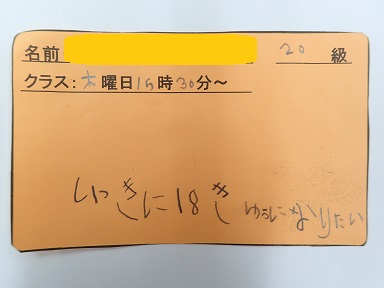 名前 20 級
クラス:木曜日15時30分～
いっきに18きゅうになりたい